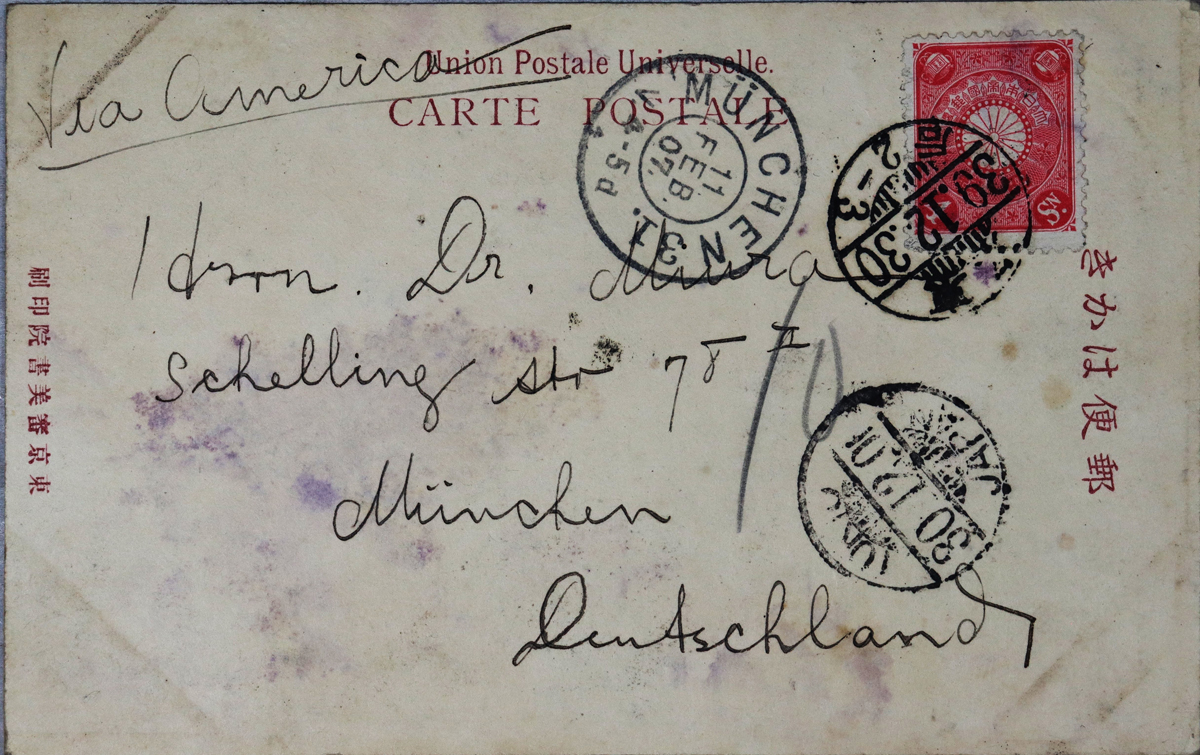 Via America
Union Postale Universelle.
CARTE POSTALE
MÜNCHEN 31.
11
FEB.
07.
V. 4-5d
39.12.30
2-3
Herrn. Dr. Miura
Schellingstr 78 II
München
Deutschland
TOKYO
30.12.06
JAPAN
きかは便郵
刷印院書美審京東